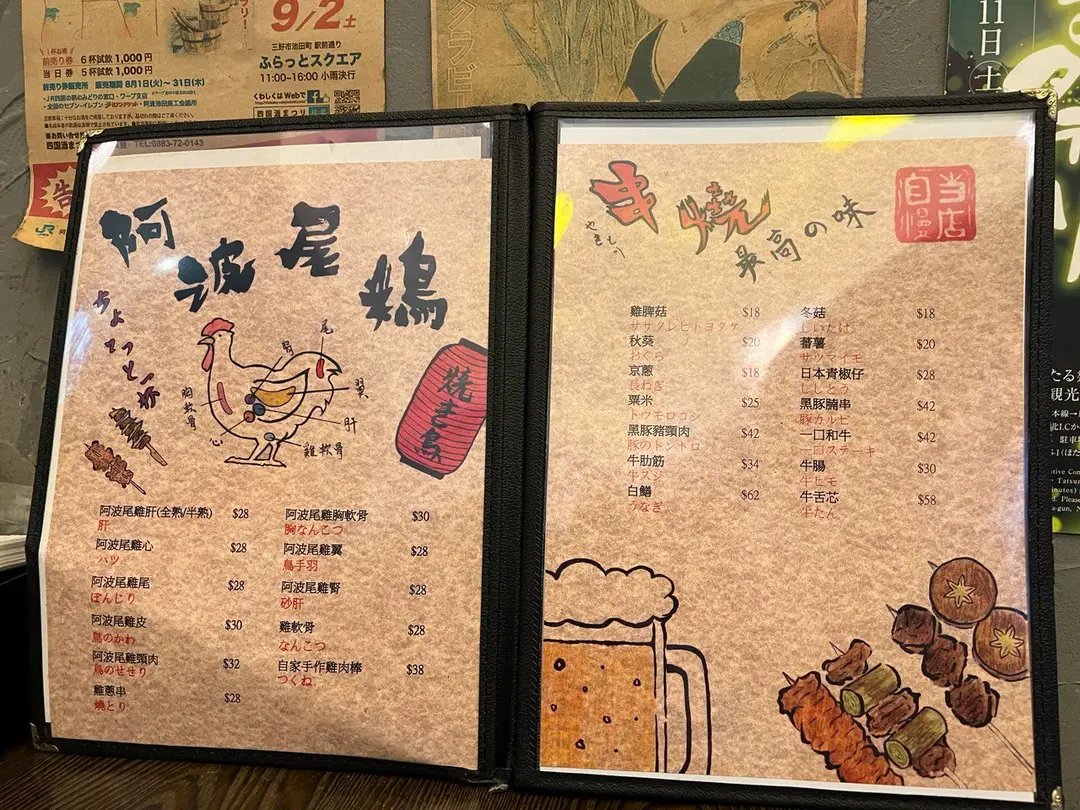 9/2土
三好市池田町 駅前通り
ふらっとスクエア
11:00~16:00 小雨決行
前売り券 6杯試飲 1,000円
当日券 5杯試飲 1,000円
前売り券販売所 販売期間 8月1日(火)～31日(木)
くわしくはWebで
四国酒まつり
TEL:0883-72-0143
告
JR
クラビ
11日土
観光
阿波尾鶏
ちょっと一杯
尾
腎
翼
胸軟骨
肝
心
雞軟骨
焼き鳥
阿波尾雞肝(全熟/半熟) $28
肝
阿波尾雞心 $28
ハツ
阿波尾雞尾 $28
ぼんじり
阿波尾雞皮 $30
鳥のかわ
阿波尾雞頸肉 $32
鳥のせせり
雞蔥串 $28
燒とり
阿波尾雞胸軟骨 $30
胸なんこつ
阿波尾雞翼 $28
鳥手羽
阿波尾雞腎 $28
砂肝
雞軟骨 $28
なんこつ
自家手作雞肉棒 $38
つくね
串燒
やきとり
最高の味
当店自慢
雞脾菇 $18
ササクレヒトヨタケ
秋葵 $20
おくら
京蔥 $18
長ねぎ
粟米 $25
トウモロコシ
黑豚豬頸肉 $42
豚のトントロ
牛肋筋 $34
牛スジ
白鱔 $62
うなぎ
冬菇 $18
しいたけ
蕃薯 $20
サツマイモ
日本青椒仔 $28
ししとう
黑豚腩串 $42
豚カルビ
一口和牛 $42
一口ステーキ
牛腸 $30
牛ヒモ
牛舌芯 $58
牛たん